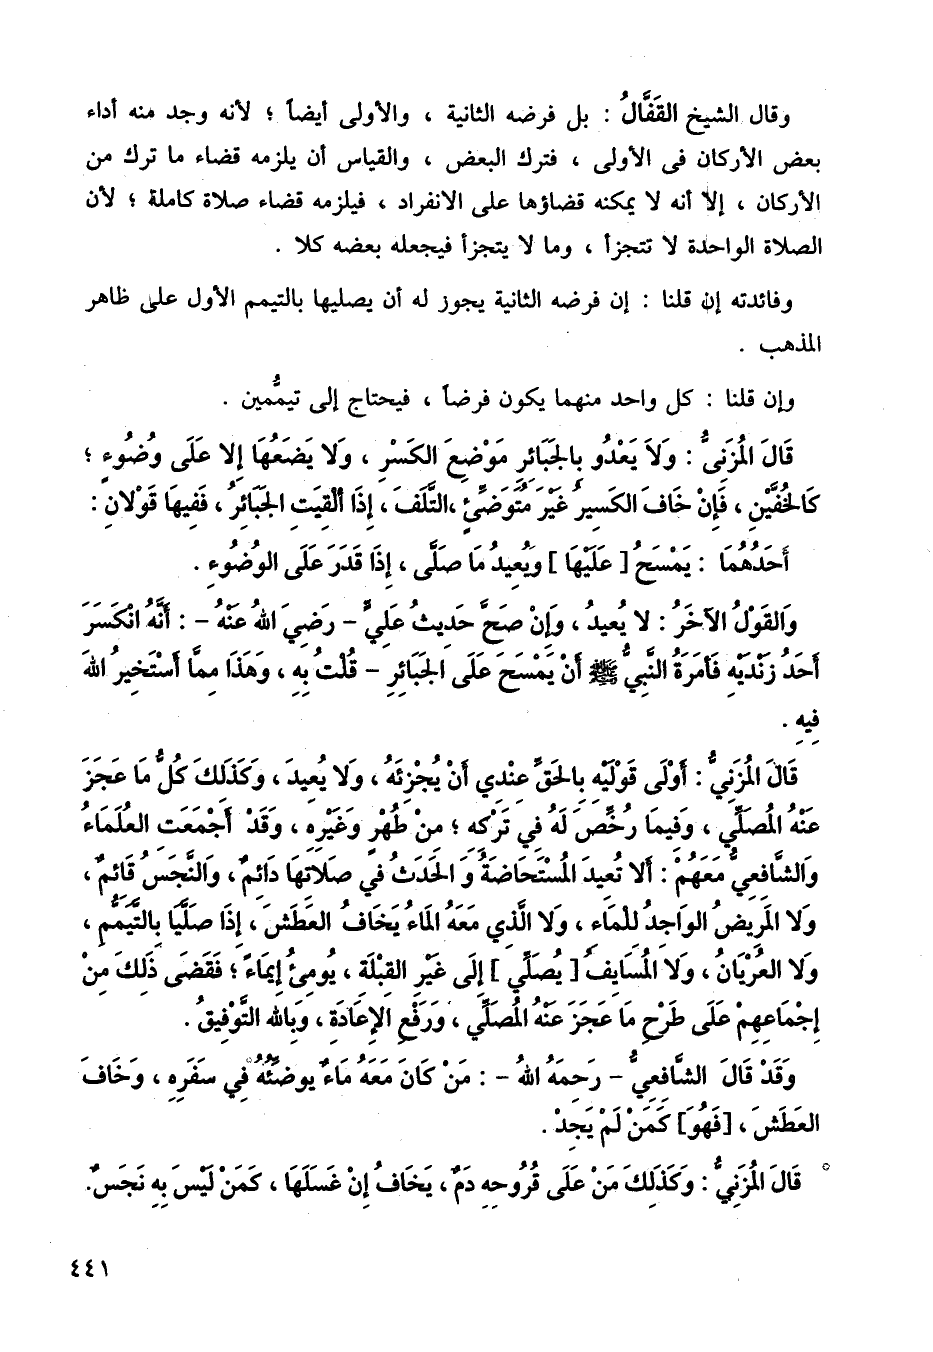 وقال الشيخ القفَّالُ : بل فرضه الثانية ، والأولى أيضاً ؛ لأنه وجد منه أداء
بعض الأركان فى الأولى ، فترك البعض ، والقياس أن يلزمه قضاء ما ترك من
الأركان ، إلا أنه لا يمكنه قضاؤها على الانفراد ، فيلزمه قضاء صلاة كاملة ؛ لأن
الصلاة الواحدة لا تتجزأ ، وما لا يتجزأ فيجعله بعضه كلا .
وفائدته إن قلنا : إن فرضه الثانية يجوز له أن يصليها بالتيمم الأول على ظاهر
المذهب .
وإن قلنا : كل واحد منهما يكون فرضاً ، فيحتاج إلى تيمُّمين .
قَالَ المُزَنِىُّ : وَلاَ يَعْدُو بِالجَبَائِرِ مَوْضِعَ الكَسْرِ ، وَلا يَضَعُهَا إلا عَلَى وضُوءٍ ؛
كَالخُفَّيْنِ ، فَإِنْ خَافَ الكَسِيرُ غَيْرَ مُتَوَضِّئٍ ،التَّلَفَ ، إِذَا أُلْقِيَتِ الجَبَائِرُ ، فَفِيهَا قَوْلانِ :
أَحَدُهُمَا : يَمْسَحُ [ عَلَيْهَا ] ويُعِيدُ مَا صَلَّى ، إِذَا قَدَرَ عَلَى الوُضُوءِ .
وَالقَوْلُ الآخَرُ : لا يُعِيدُ ، وَإِنْ صَحَّ حَدِيثُ عَلِيٍّ - رَضِيَ اللهُ عَنْهُ - : أَنَّهُ انْكَسَرَ
أَحَدُ زَنْدَيْهِ فَأَمَرَهُ النَّبِيُّ ﷺ أَنْ يَمْسَحَ عَلَى الجَبَائِرِ - قُلْتُ بِهِ ، وَهَذَا مِمَّا أَسْتَخِيرُ اللهَ
فِيهِ .
قَالَ المُزَنِيُّ : أَوْلَى قَوْلَيْهِ بِالحَقِّ عِنْدِي أَنْ يُجْزِئَهُ ، وَلا يُعِيدَ ، وَكَذَلِكَ كُلُّ مَا عَجَزَ
عَنْهُ المُصَلِّي ، وَفِيمَا رُخِّصَ لَهُ فِي تَرْكِهِ ؛ مِنْ طُهْرٍ وَغَيْرِهِ ، وَقَدْ أَجْمَعَتِ العُلَمَاءُ
وَالشَّافِعِيُّ مَعَهُمْ : أَلا تُعِيدَ المُسْتَحَاضَةُ وَ الحَدَثُ فِي صَلاتِهَا دَائِمٌ ، وَالنَّجَسُ قَائِمٌ ،
وَلا المَرِيضُ الوَاجِدُ لِلْمَاءِ ، وَلا الَّذِي مَعَهُ المَاءُ يَخَافُ العَطَشَ ، إِذَا صَلَّيَا بِالتَّيَمُّمِ ،
وَلا العُرْيَانُ ، وَلا المُسَايِفُ [ يُصَلِّي ] إِلَى غَيْرِ القِبْلَةِ ، يُومِئُ إِيمَاءً ؛ فَقَضَى ذَلِكَ مِنْ
إِجْمَاعِهِمْ عَلَى طَرْحِ مَا عَجَزَ عَنْهُ المُصَلِّي ، وَرَفْعِ الإِعَادَةِ ، وَبِاللهِ التَّوْفِيقُ .
وَقَدْ قَالَ الشَّافِعِيُّ - رَحِمَهُ اللهُ - : مَنْ كَانَ مَعَهُ مَاءٌ يوضِّئُهُ فِي سَفَرِهِ ، وَخَافَ
العَطَشَ ، [فَهُوَ] كَمَنْ لَمْ يَجِدْ .
قَالَ المُزَنِيُّ : وَكَذَلِكَ مَنْ عَلَى قُرُوحِهِ دَمٌ ، يَخَافُ إِنْ غَسَلَهَا ، كَمَنْ لَيْسَ بِهِ نَجَسٌ.
٤٤١